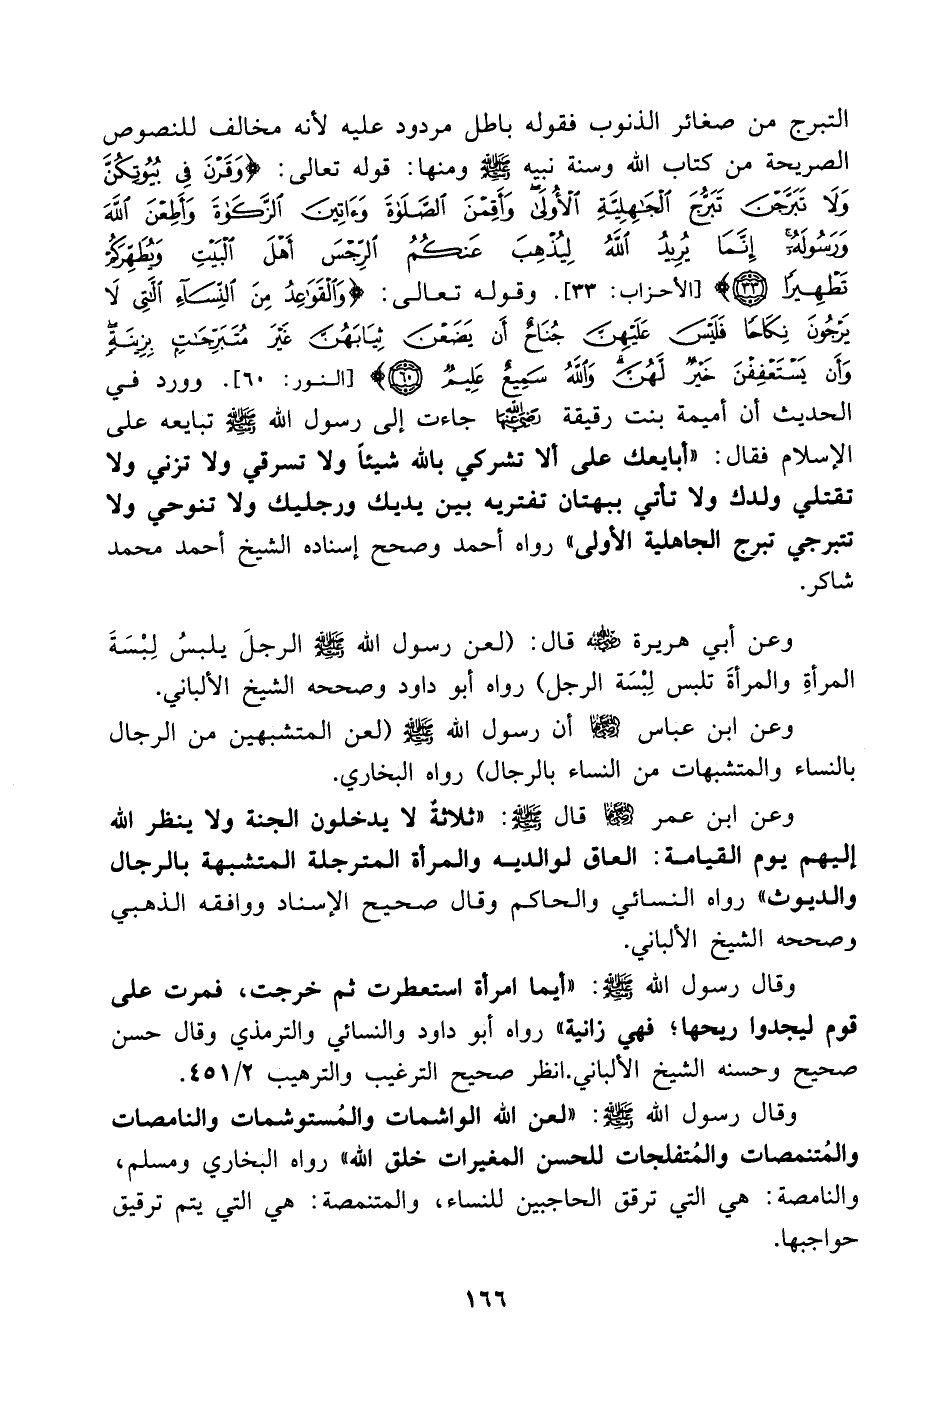 التبرج من صغائر الذنوب فقوله باطل مردود عليه لأنه مخالف للنصوص
الصريحة من كتاب الله وسنة نبيه ﷺ ومنها: قوله تعالى: ﴿وَقَرْنَ فِي بُيُوتِكُنَّ
وَلَا تَبَرَّجْنَ تَبَرُّجَ الْجَاهِلِيَّةِ الْأُولَىٰ وَأَقِمْنَ الصَّلَوٰةَ وَءَاتِينَ الزَّكَوٰةَ وَأَطِعْنَ اللَّهَ
وَرَسُولَهُۥ إِنَّمَا يُرِيدُ اللَّهُ لِيُذْهِبَ عَنكُمُ الرِّجْسَ أَهْلَ الْبَيْتِ وَيُطَهِّرَكُمْ
تَطْهِيرًا ٣٣﴾ [الأحزاب: ٣٣]. وقوله تعالى: ﴿وَالْقَوَاعِدُ مِنَ النِّسَآءِ الَّتِي لَا
يَرْجُونَ نِكَاحًا فَلَيْسَ عَلَيْهِنَّ جُنَاحٌ أَن يَضَعْنَ ثِيَابَهُنَّ غَيْرَ مُتَبَرِّجَٰتٍ بِزِينَةٍ
وَأَن يَسْتَعْفِفْنَ خَيْرٌ لَّهُنَّ وَاللَّهُ سَمِيعٌ عَلِيمٌ ٦٠﴾ [النور: ٦٠]. وورد في
الحديث أن أميمة بنت رقيقة رضي الله عنها جاءت إلى رسول الله ﷺ تبايعه على
الإسلام فقال: «أبايعك على ألا تشركي بالله شيئاً ولا تسرقي ولا تزني ولا
تقتلي ولدك ولا تأتي ببهتان تفتريه بين يديك ورجليك ولا تنوحي ولا
تتبرجي تبرج الجاهلية الأولى» رواه أحمد وصحح إسناده الشيخ أحمد محمد
شاكر.
وعن أبي هريرة رضي الله عنه قال: (لعن رسول الله ﷺ الرجلَ يلبسُ لِبْسَةَ
المرأةِ والمرأةَ تلبس لِبْسَة الرجل) رواه أبو داود وصححه الشيخ الألباني.
وعن ابن عباس رضي الله عنهما أن رسول الله ﷺ (لعن المتشبهين من الرجال
بالنساء والمتشبهات من النساء بالرجال) رواه البخاري.
وعن ابن عمر رضي الله عنهما قال ﷺ: «ثلاثةٌ لا يدخلون الجنة ولا ينظر الله
إليهم يوم القيامة: العاق لوالديه والمرأة المترجلة المتشبهة بالرجال
والديوث» رواه النسائي والحاكم وقال صحيح الإسناد ووافقه الذهبي
وصححه الشيخ الألباني.
وقال رسول الله ﷺ: «أيما امرأة استعطرت ثم خرجت، فمرت على
قوم ليجدوا ريحها؛ فهي زانية» رواه أبو داود والنسائي والترمذي وقال حسن
صحيح وحسنه الشيخ الألباني.انظر صحيح الترغيب والترهيب ٤٥١/٢.
وقال رسول الله ﷺ: «لعن الله الواشمات والمُستوشمات والنامصات
والمُتنمصات والمُتفلجات للحسن المغيرات خلق الله» رواه البخاري ومسلم،
والنامصة: هي التي ترقق الحاجبين للنساء، والمتنمصة: هي التي يتم ترقيق
حواجبها.
١٦٦